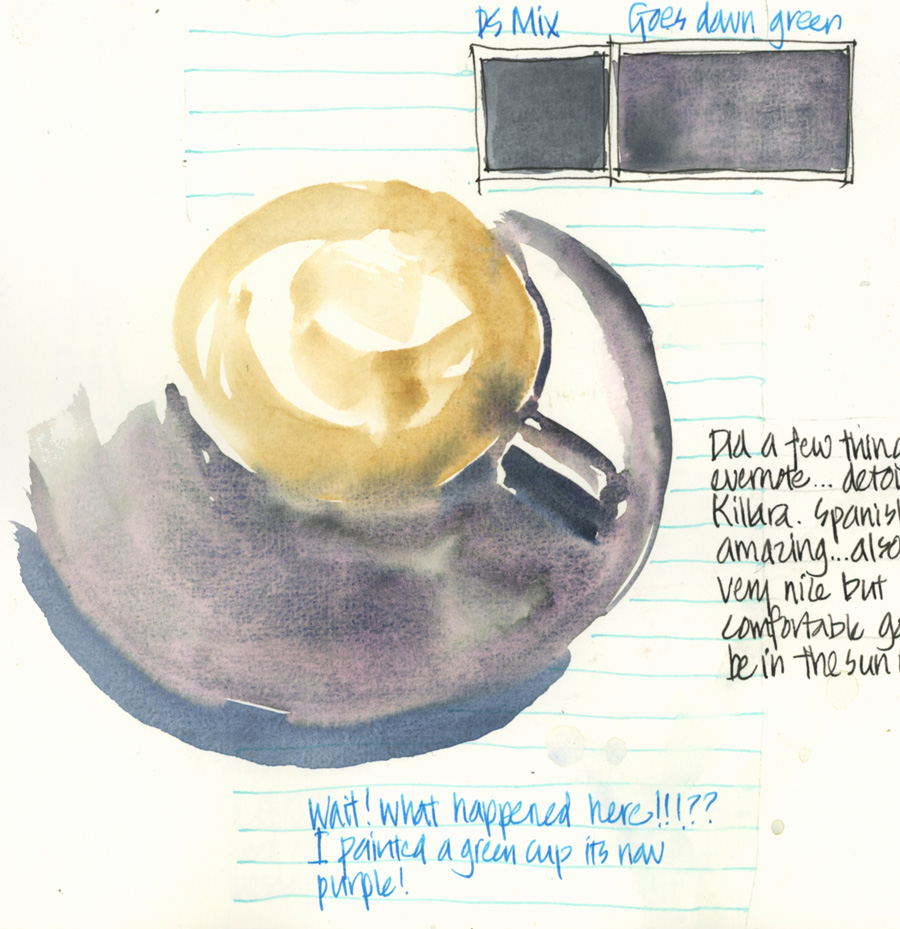 DS Mix
Goes down green
Did a few thing
evernote... detou
Killara. Spanish
amazing...also
very nice but
comfortable go
be in the sun
Wait! what happened here!!!??
I painted a green cup its now
purple!